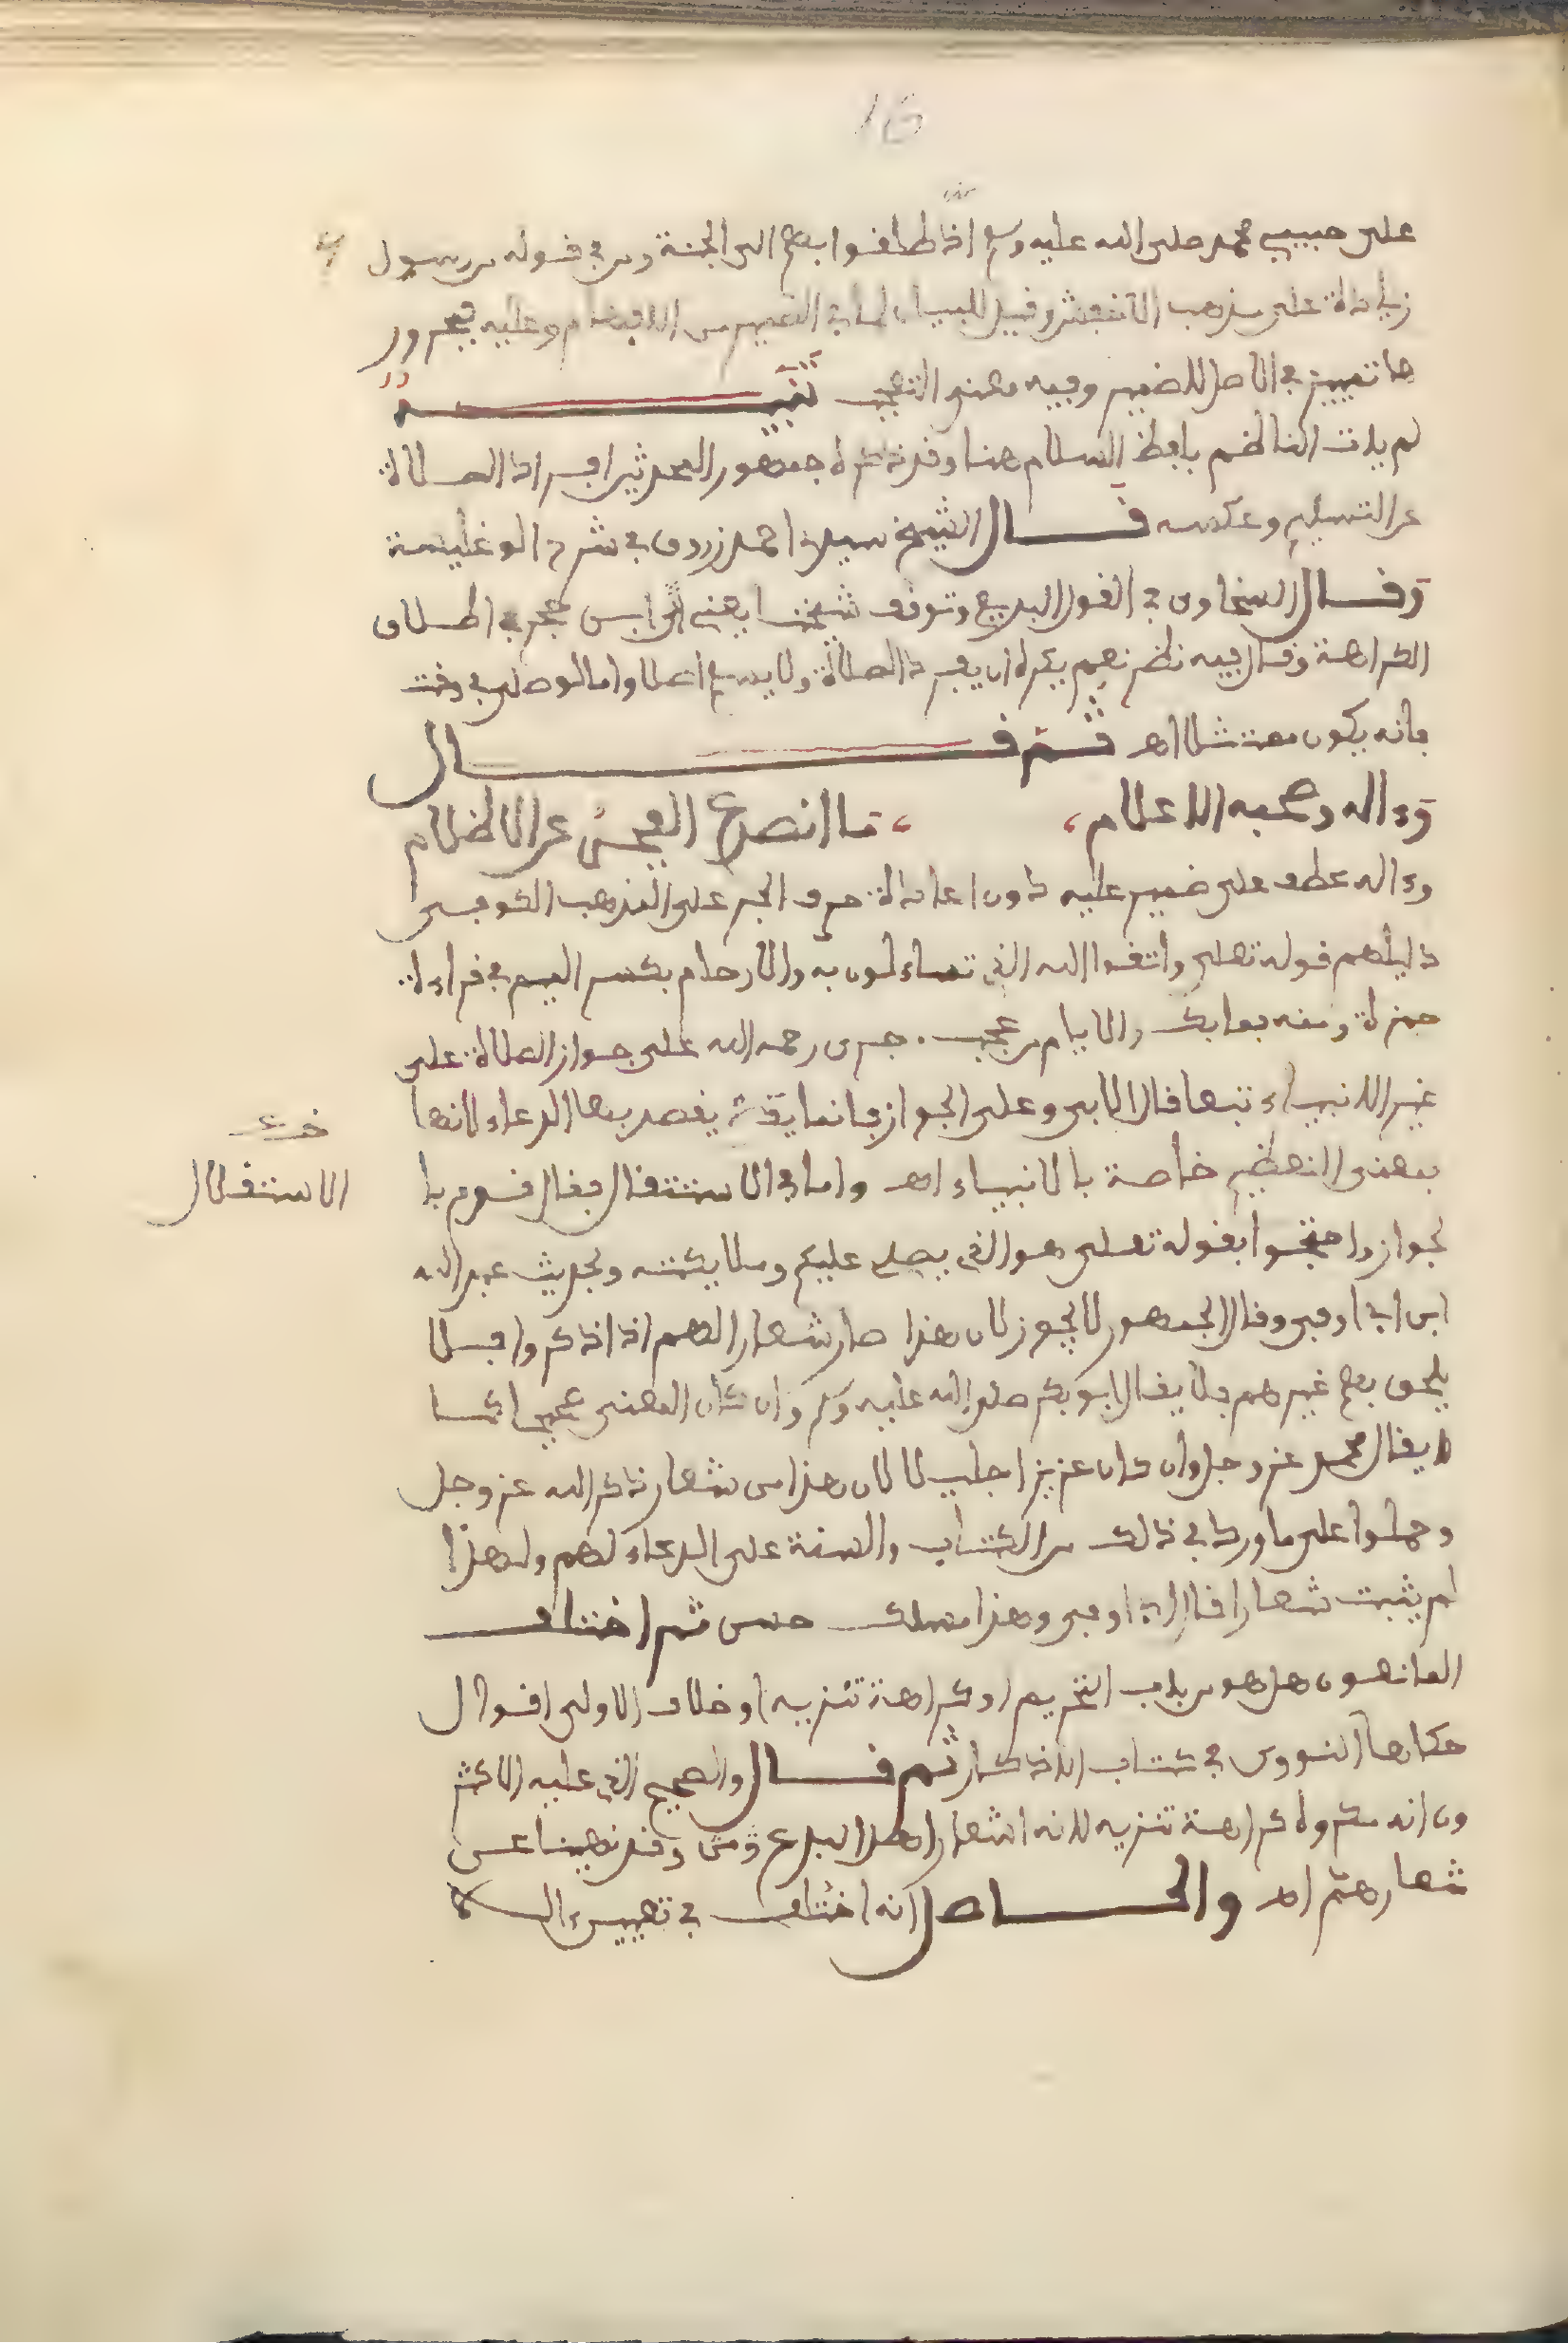 16
على حبيبي محمد صلى الله عليه وسلم اذا انطلقوا بهم الى الجنة ومن في قوله من رسول
زيادة على مذهب الاخفش وقيل للبيان لما في الضمير من الابهام وعليه فمجرور
ها تمييز في الاصل للضمير وفيه معنى التعجب تنبيـــه
لم يات الناظم بلفظ السلام هنا وقد كره جمهور المحدثين افراد الصلاة
عن التسليم وعكسه قـــال الشيخ سيدي احمد زروق في شرح الوغليسة
وقـــال السخاوي في القول البديع وتوقف شيخنا يعني ابن حجر في اطلاق
الكراهة وقال فيه نظر نعم يكره ان يفرد الصلاة ولا يسلم اصلا واما لو صلى في وقت
فانه يكون ممتثلا اهـ ثـم قـــال
وءاله وصحبه الاعلام ، ، ما انصدع الفجر عن الاظلام
وءاله عطف على ضمير عليه دون اعادة حرف الجر على المذهب الكوفي
دليلهم قوله تعلى واتقوا الله الذي تساءلون به والارحام بكسر الميم في قراءة
حمزة ومنه فما بك والايام من عجب . جرى رحمه الله على جواز الصلاة على
غير الانبياء تبعا قال الابي وعلى الجواز فانما يقصد بها الدعاء لانها
بمعنى التعظيم خاصة بالانبياء اهـ واما في الاستقال فقال قوم با
الاستقلال
لجواز واحتجوا بقوله تعلى هو الذي يصلي عليكم وملايكته وبحديث عبد الله
ابن ابي اوفى وقال الجمهور لا يجوز لان هذا صار شعارا لهم اذا ذكروا فلا
يلحق بهم غيرهم فلا يقال ابو بكر صلى الله عليه وسلم وان كان المعنى صحيحا كما
لا يقال محمد عز وجل وان كان عزيزا جليلا لان هذا من شعار ذكر الله عز وجل
وحملوا على ما ورد في ذلك من الكتاب والسنة على الدعاء لهم ولهذا
لم يثبت شعارا قال ابن ابي اوفى وهذا مسلك حسن ثم اختلف
المانعون هل هو من باب التحريم او كراهة تنزيه او خلاف الاولى اقوال
حكاها النووي في كتاب الاذكار ثم قـــال والصحيح الذي عليه الاكثر
ون انه مكروه كراهة تنزيه لانه شعار اهل البدع وقد نهينا عن
شعارهم اهـ والحـــاصل انه اختلف في تعيين الـ